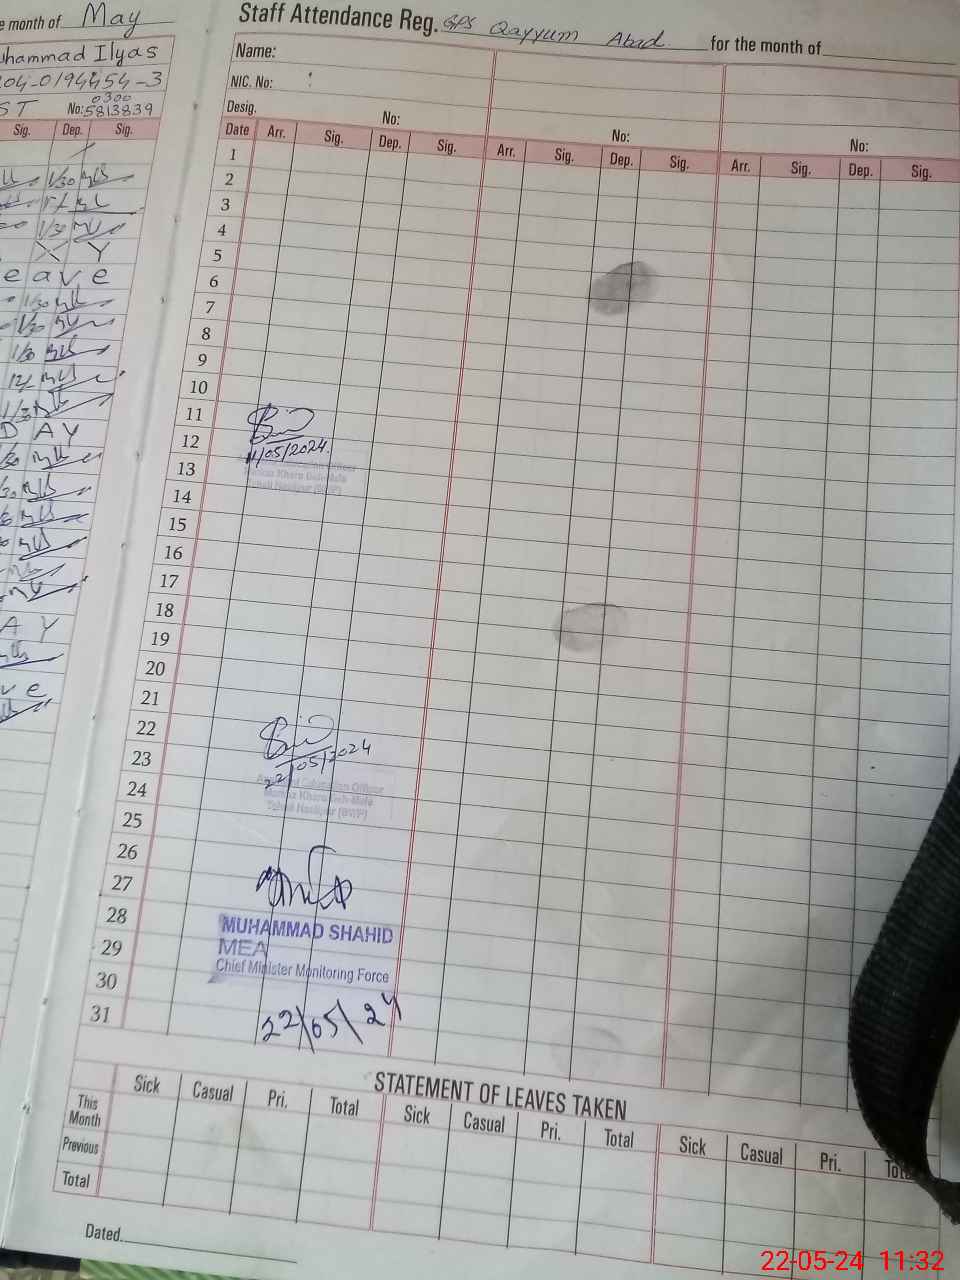 e month of May
uhammad Ilyas
204-0194454-3
ST No: 0300
5813839
Sig. Dep. Sig.
1/30
1/30
X Y
eave
1/30
1/30
1/30
12/
1/30
DAY
1/30
AY
ve
Staff Attendance Reg. GPS Qayyum Abad for the month of
Name:
NIC. No:
Desig. No: No: No:
Date Arr. Sig. Dep. Sig. Arr. Sig. Dep. Sig. Arr. Sig. Dep. Sig.
1
2
3
4
5
6
7
8
9
10
11
12
11/05/2024.
13
Tehsil Hasilpur (BWP)
14
15
16
17
18
19
20
21
22
23
22/05/2024
24
Officer
Markaz Khara Male
Tehsil Hasilpur (BWP)
25
26
27
28
MUHAMMAD SHAHID
29
MEA
Chief Minister Monitoring Force
30
31
22/05/24
STATEMENT OF LEAVES TAKEN
Sick Casual Pri. Total Sick Casual Pri. Total Sick Casual Pri. Total
This Month
Previous
Total
Dated
22-05-24 11:32